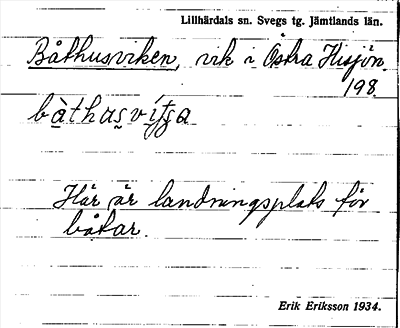 Lillhärdals sn. Svegs tg. Jämtlands län.
Båthusviken, vik i Östra Husjön.
198.
Här är landningsplats för
båtar.
Erik Eriksson 1934.